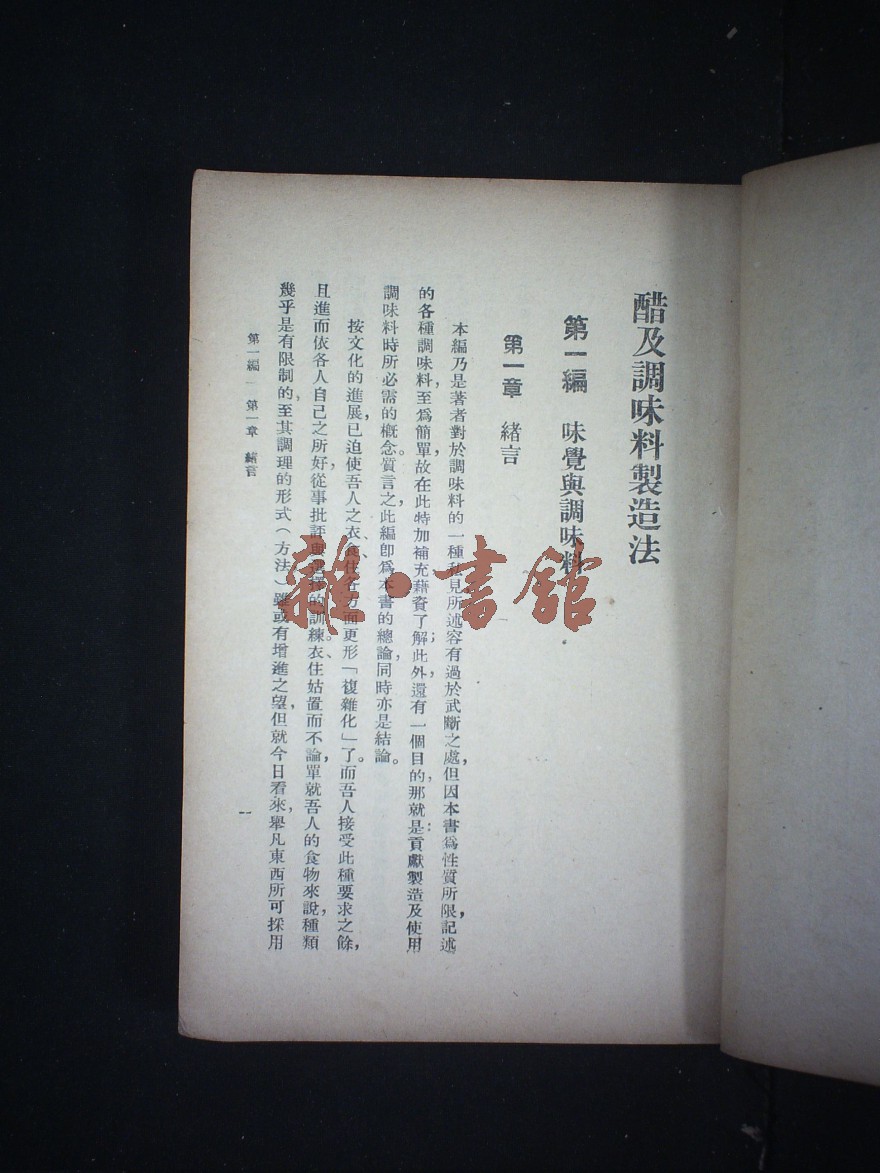 醋及調味料製造法
第一編　味覺與調味料
第一章　緒言
本編乃是著者對於調味料的一種私見所述容有過於武斷之處，但因本書爲性質所限，記述
的各種調味料，至爲簡單，故在此特加補充藉資了解；此外，還有一個目的，那就是：貢獻製造及使用
調味料時所必需的概念。質言之，此編卽爲本書的總論，同時亦是結論。
按文化的進展，已迫使吾人之衣、食、住各方面更形「複雜化」了。而吾人接受此種要求之餘，
且進而依各人自己之所好，從事批評與選擇的訓練。衣、住姑置而不論，單就吾人的食物來說，種類
幾乎是有限制的，至其調理的形式（方法）雖或有增進之望，但就今日看來，舉凡東西所可採用
第一編　第一章　緒言
一
雜·書館